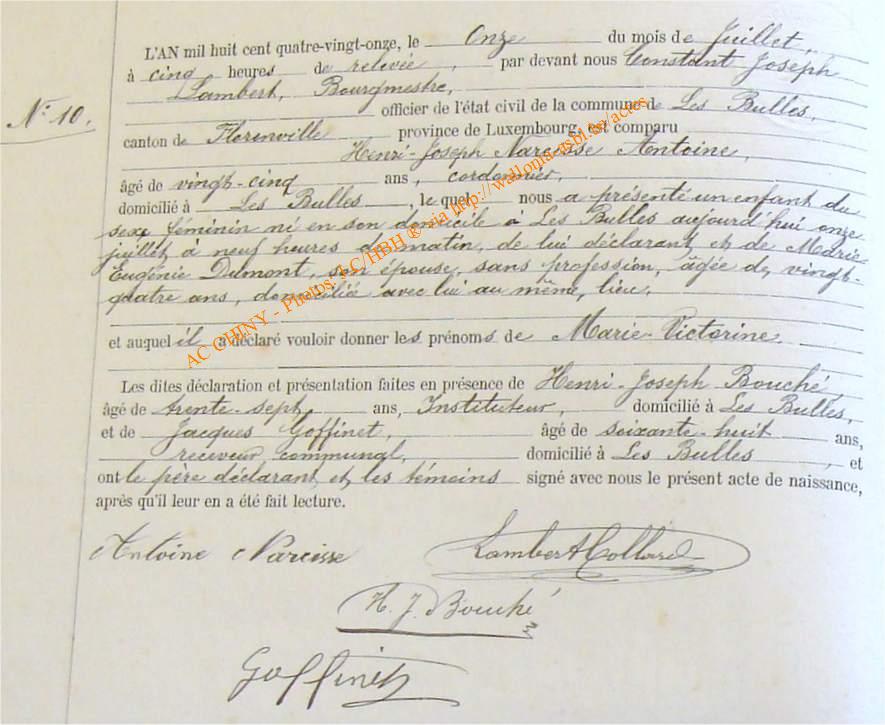 L'AN mil huit cent quatre-vingt-onze, le Onze du mois de Juillet,
à cinq heures de relevée, par devant nous Constant Joseph
Lambert, Bourgmestre,
N° 10.
officier de l'état civil de la commune de Les Bulles,
canton de Florenville province de Luxembourg, est comparu
Henri-Joseph Narcisse Antoine,
âgé de vingt-cinq ans, cordonnier,
domicilié à Les Bulles, le quel nous a présenté un enfant du
sexe féminin né en son domicile à Les Bulles aujourd'hui onze
juillet à neuf heures du matin, de lui déclarant et de Marie-
Eugénie Dumont, son épouse, sans profession, âgée de vingt-
quatre ans, domiciliée avec lui au même lieu,
et auquel il a déclaré vouloir donner les prénoms de Marie-Victorine
Les dites déclaration et présentation faites en présence de Henri-Joseph Bouché,
âgé de trente-sept ans, Instituteur, domicilié à Les Bulles,
et de Jacques Goffinet, âgé de soixante-huit ans,
receveur communal, domicilié à Les Bulles, et
ont le père déclarant et les témoins signé avec nous le présent acte de naissance,
après qu'il leur en a été fait lecture.
Antoine Narcisse Lambert Collard
H. J. Bouché
Goffinet
AC CHINY - Photos: LC/HBH ® via http://wallonia-asbl.be/actes